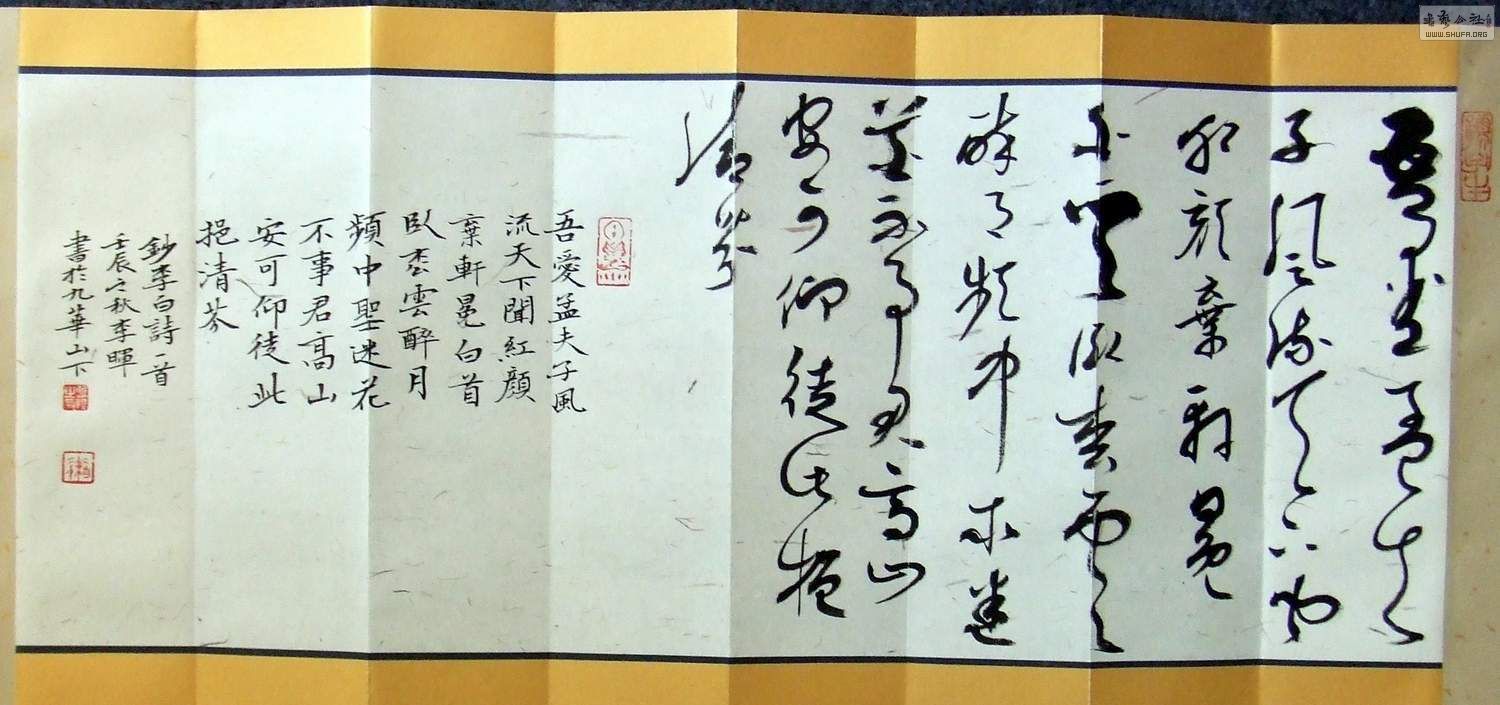 吾愛孟夫
子風流天下聞
紅顏棄軒冕
白首臥枩雲
醉月頻中聖迷
花不事君高山
安可仰徒此挹
清芬
吾愛孟夫子風
流天下聞紅顏
棄軒冕白首
臥枩雲醉月
頻中聖迷花
不事君高山
安可仰徒此
挹清芬
鈔李白詩一首
壬辰之秋李暉
書於九華山下
書藝公社
WWW.SHUFA.ORG